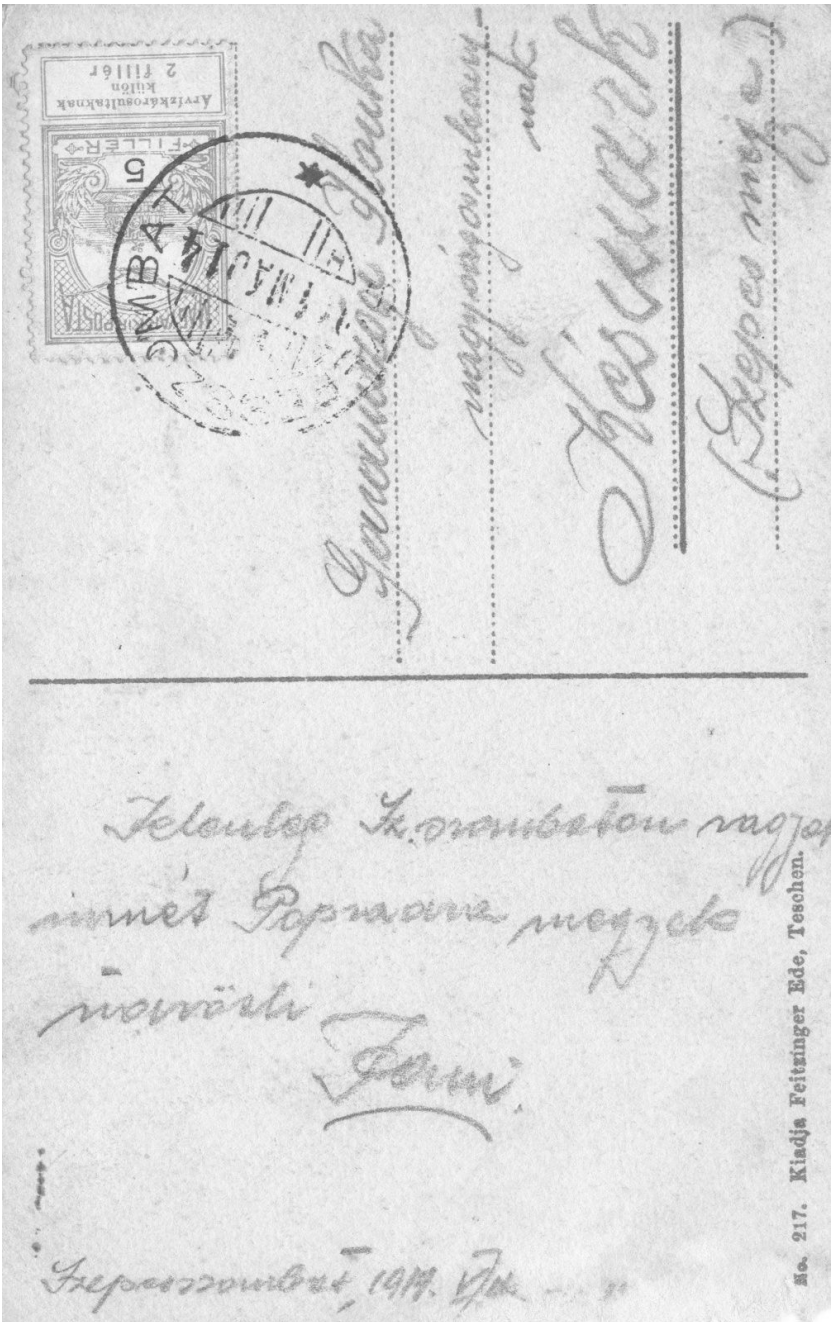 Árvízkárosultaknak
külön
2 fillér
FILLÉR
5
MAGYAR KIR. POSTA
OMBAT
MÁJ 14
Ilonka
nagyságomkisasszony-
nak
Késmark
(Szepes megye)
Jelenleg Sz.szombaton vagyok
ismét Popradra megyek
Szepesszombat, 1914. V/14.
No. 217. Kiadja Feitzinger Ede, Teschen.